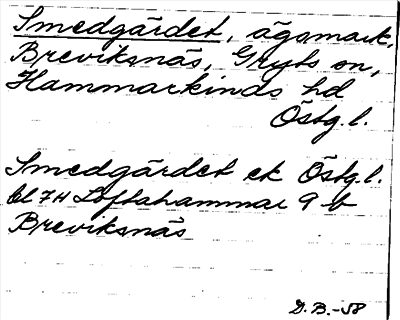 Smedgärdet, ägomark,
Breviksnäs, Gryts sn,
Hammarkinds hd
Östg.l.
Smedgärdet ek Östg.l.
bl 7H Loftahammar 9 b
Breviksnäs
D.B.-58